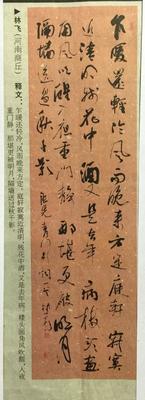 乍暖还轻冷风雨晚来方定庭轩寂寞
近清明残花中酒又是去年病楼头画
角风吹醒入夜重门静那堪更被明月
隔墙送过秋千影 张先青门引词一首 林飞
▶林飞（河南商丘） 释文：乍暖还轻冷，风雨晚来方定。庭轩寂寞近清明，残花中酒，又是去年病。楼头画角风吹醒，入夜
重门静。那堪更被明月，隔墙送过秋千影。